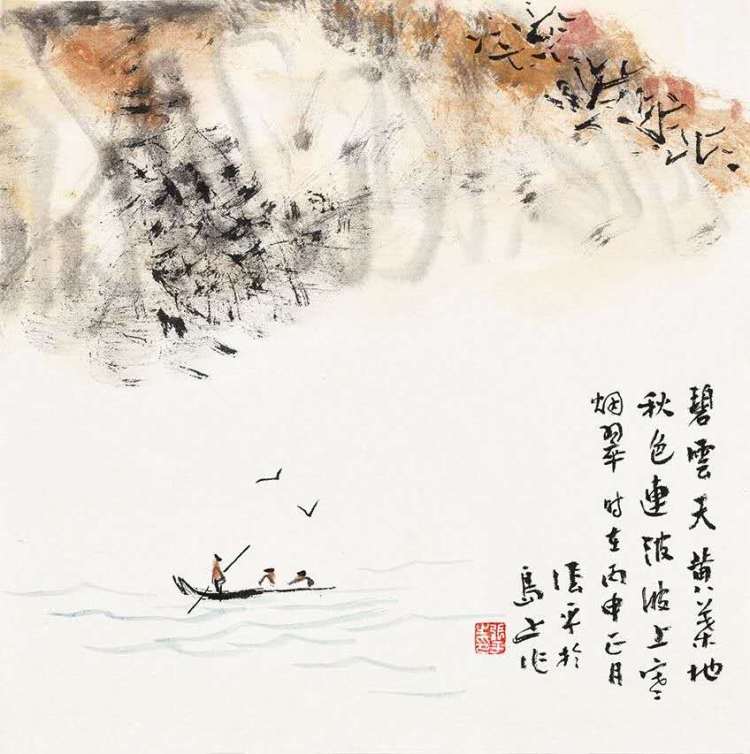 碧雲天黄葉地
秋色連波波上寒
烟翠 时在丙申正月
張平於
島上作
張平